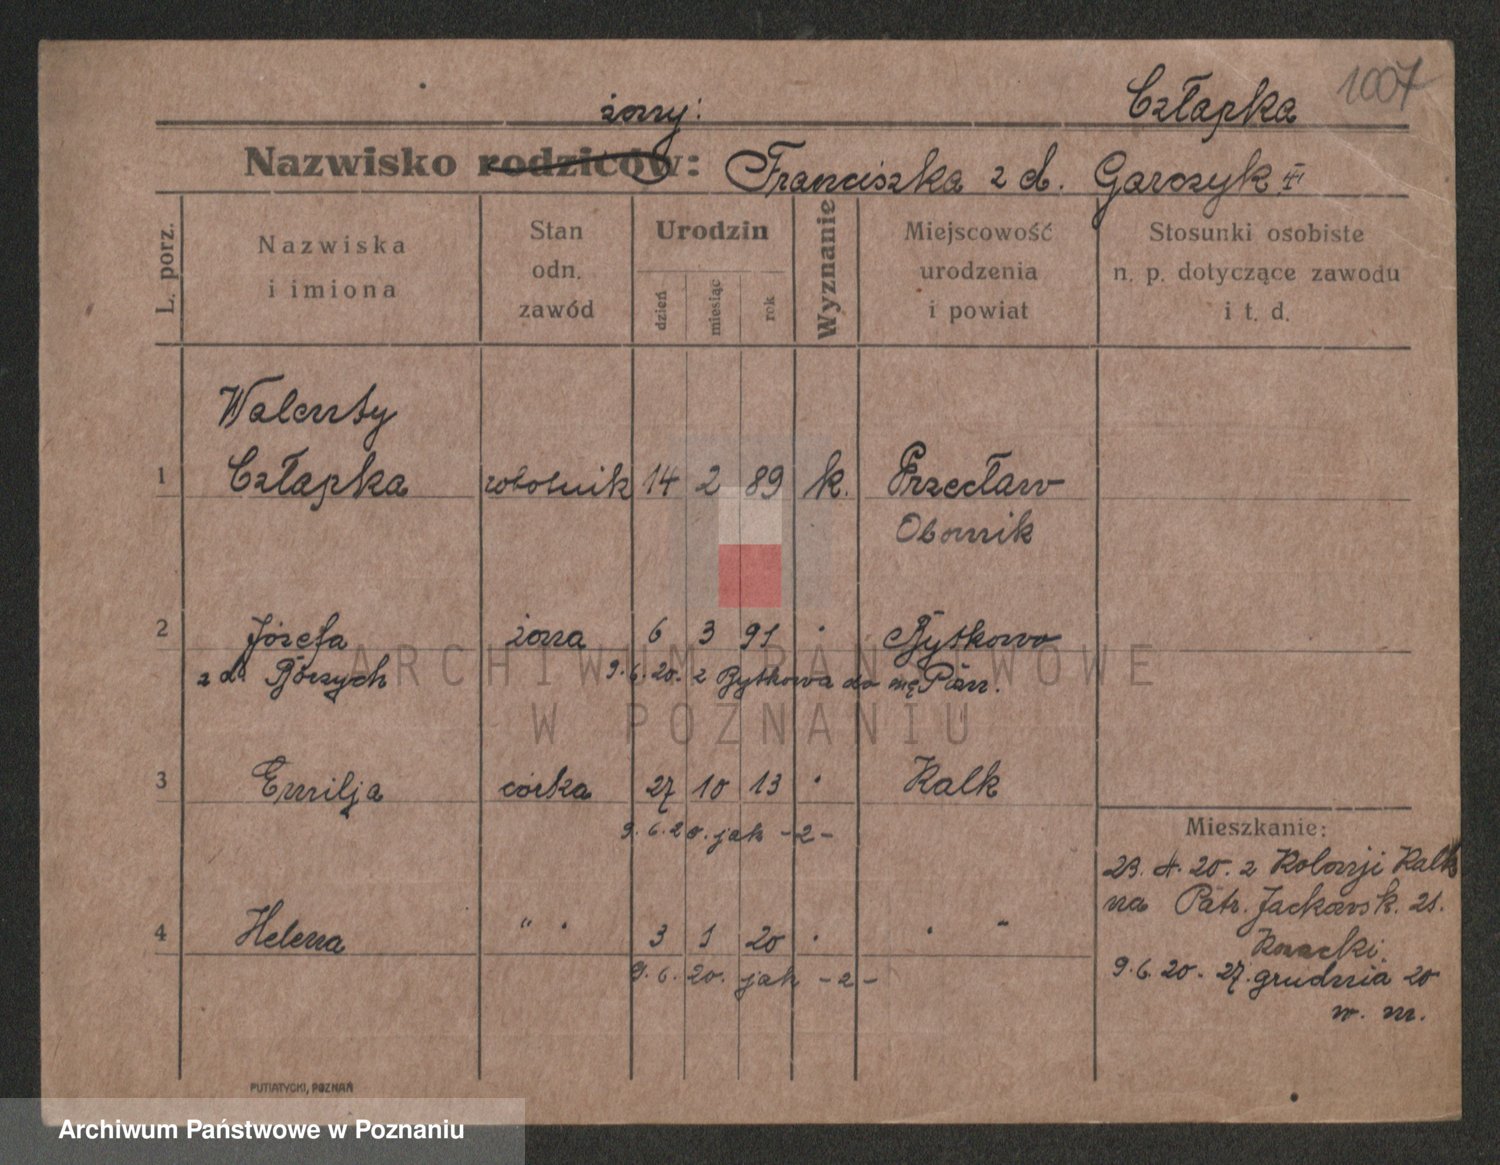 1007
żony: Człapka
Nazwisko rodziców: Franciszka z d. Garczyk
L. porz.
Nazwiska
i imiona
Stan
odn.
zawód
Urodzin
dzień
miesiąc
rok
Wyznanie
Miejscowość
urodzenia
i powiat
Stosunki osobiste
n. p. dotyczące zawodu
i t. d.
Walenty
1 Człapka robotnik 14 2 89 k. Przecław
Obornik
2 Józefa żona 6 3 91 Bytkowo
z d. 9.6.20. z Bytkowa do
ARCHIWUM PAŃSTWOWE
W POZNANIU
3 Emilja córka 27 10 13 Kalk
9.6.20. jak -2-
4 Helena " 3 1 20 "
9.6.20. jak -2-
Mieszkanie:
23. 4. 20. z Kolonji Kalk
na Patr. Jackowsk. 21.
9.6.20. 27. grudnia 20
w. m.
PUTIATYCKI, POZNAŃ
Archiwum Państwowe w Poznaniu